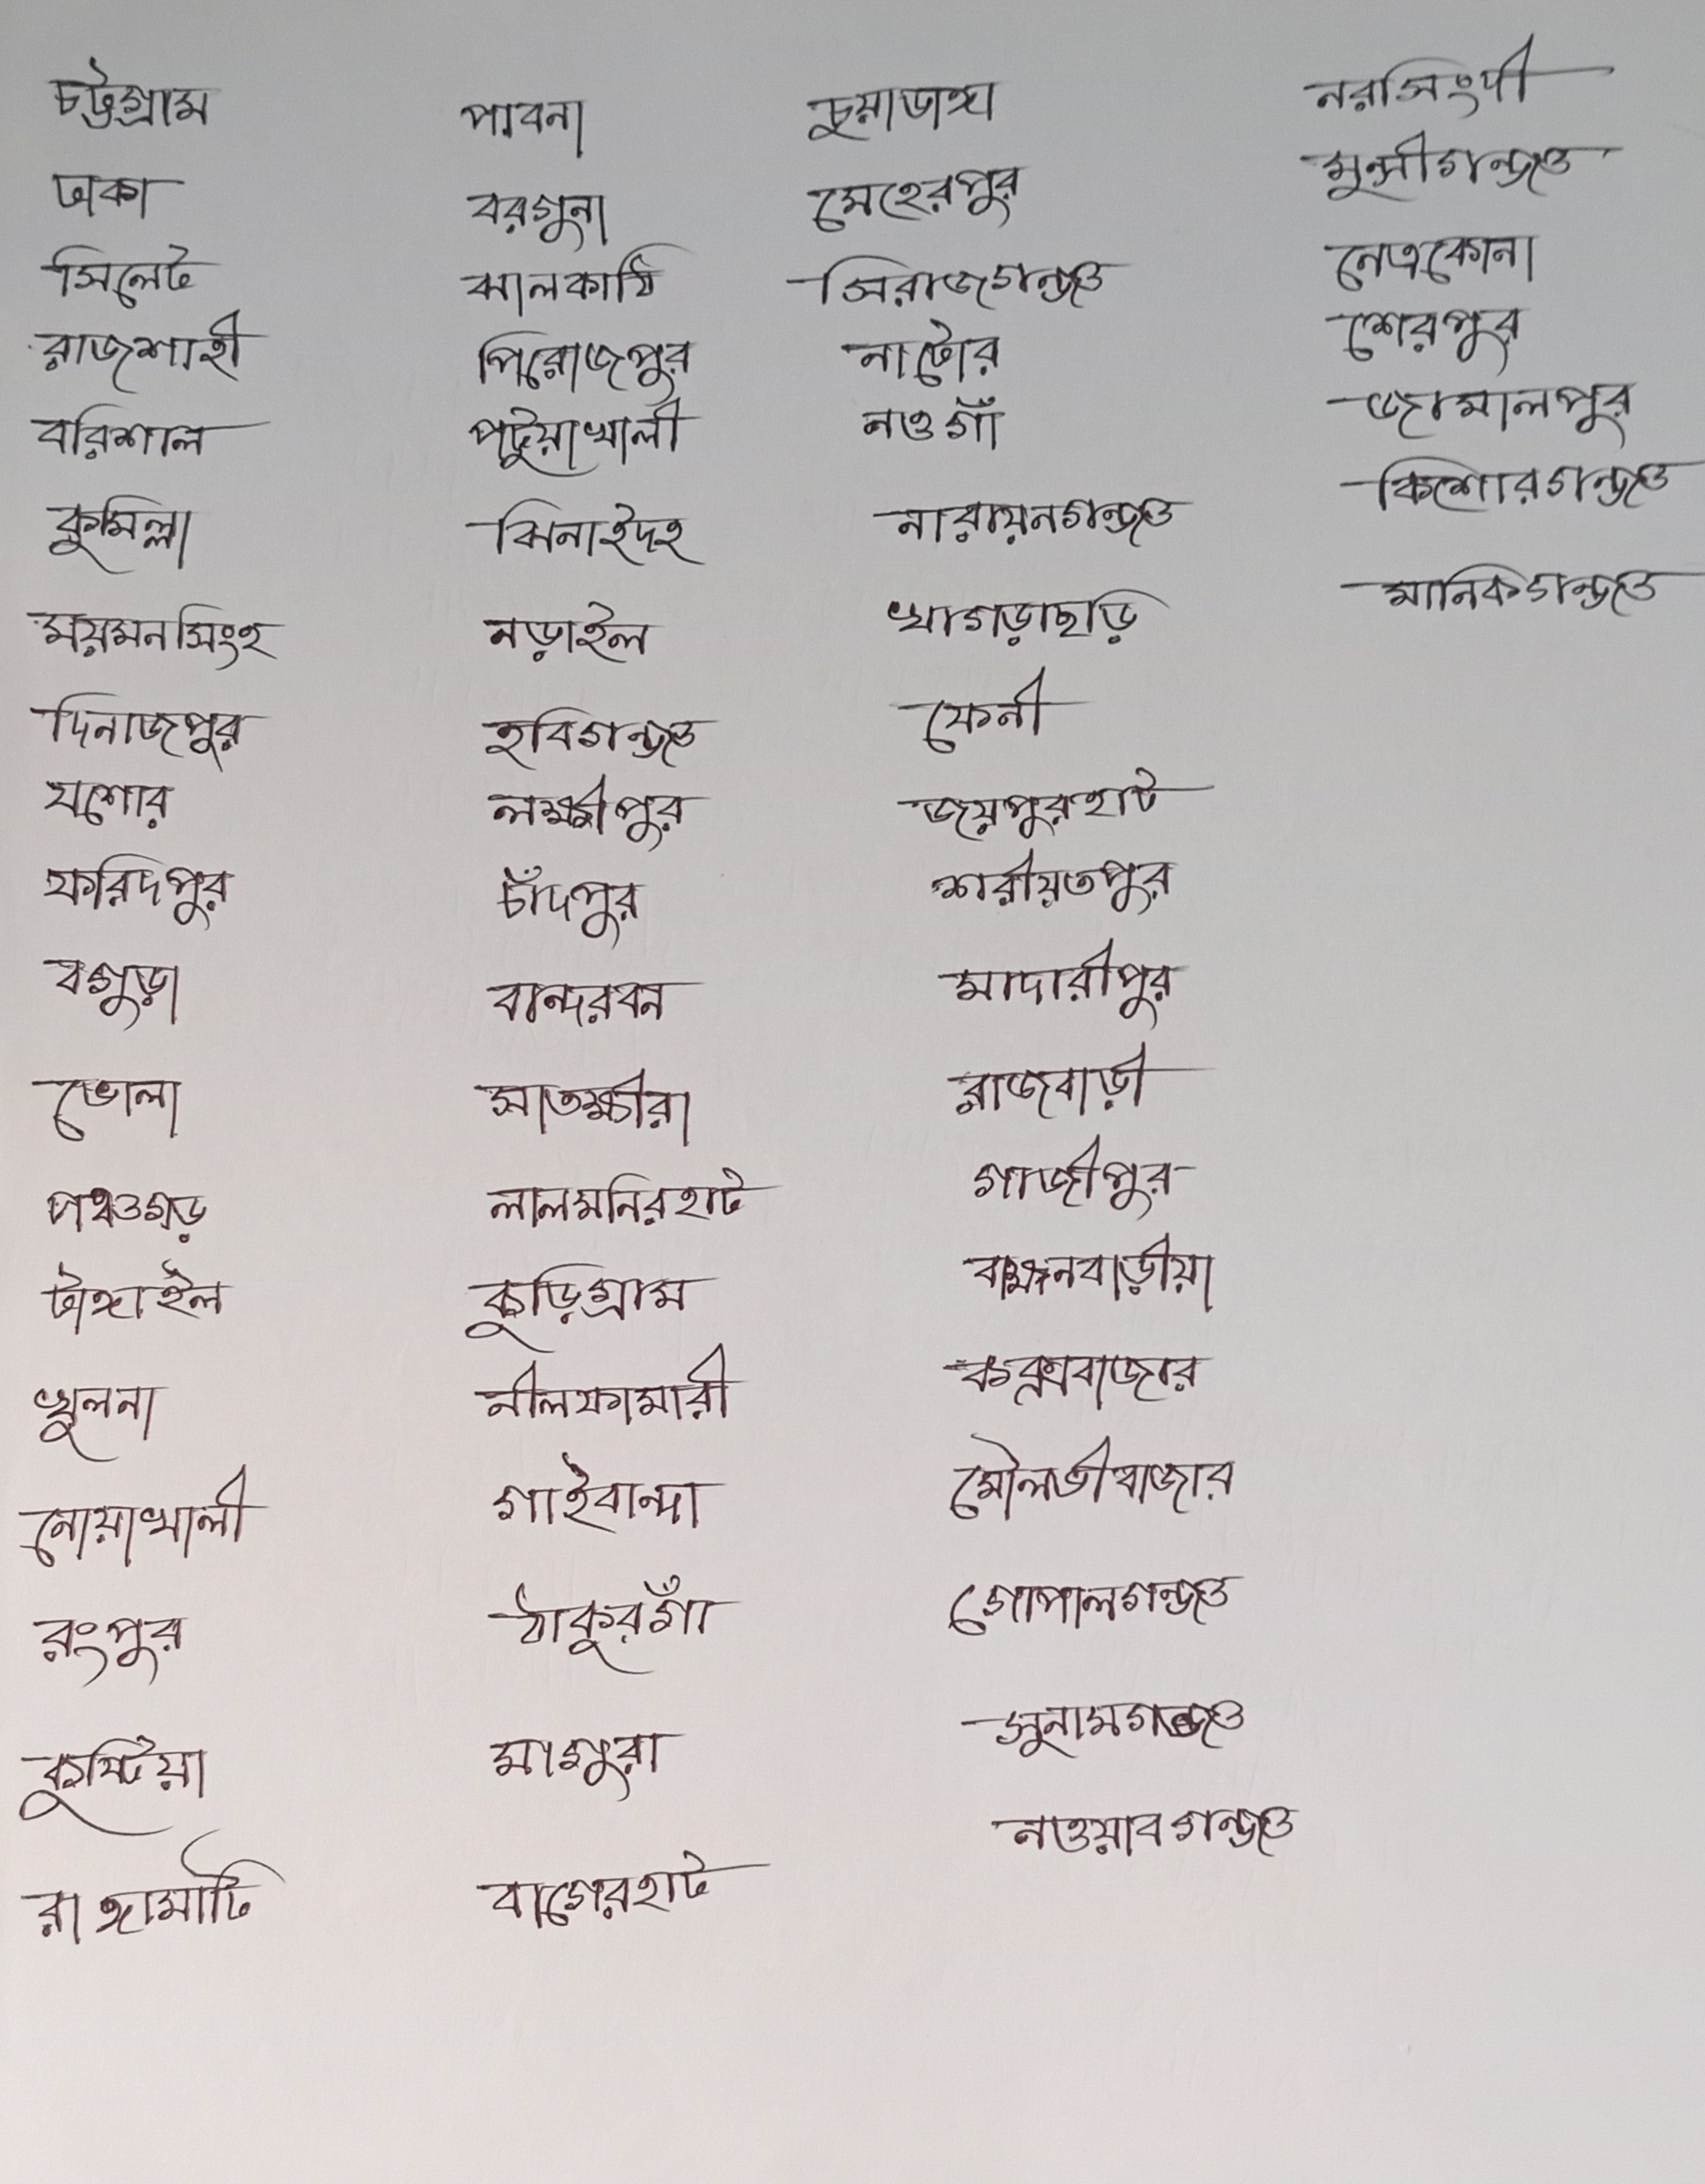 চট্টগ্রাম
ঢাকা
সিলেট
রাজশাহী
বরিশাল
কুমিল্লা
ময়মনসিংহ
দিনাজপুর
যশোর
ফরিদপুর
বগুড়া
ভোলা
পঞ্চগড়
টাঙ্গাইল
খুলনা
নোয়াখালী
রংপুর
কুষ্টিয়া
রাঙ্গামাটি
পাবনা
বরগুনা
ঝালকাঠি
পিরোজপুর
পটুয়াখালী
ঝিনাইদহ
নড়াইল
হবিগন্জ্ঞ
লক্ষ্মীপুর
চাঁদপুর
বান্দরবন
সাতক্ষীরা
লালমনিরহাট
কুড়িগ্রাম
নীলফামারী
গাইবান্দা
ঠাকুরগাঁ
মাগুরা
বাগেরহাট
চুয়াডাঙ্গা
মেহেরপুর
সিরাজগন্জ্ঞ
নাটোর
নওগাঁ
নারায়নগন্জ্ঞ
খাগড়াছড়ি
ফেনী
জয়পুরহাট
শরীয়তপুর
মাদারীপুর
রাজবাড়ী
গাজীপুর
কক্সবাজার
মৌলভীবাজার
গোপালগন্জ্ঞ
সুনামগন্জ্ঞ
নওয়াবগন্জ্ঞ
নরসিংদী
মুন্সীগন্জ্ঞ
নেত্রকোনা
শেরপুর
জামালপুর
কিশোরগন্জ্ঞ
মানিকগন্জ্ঞ